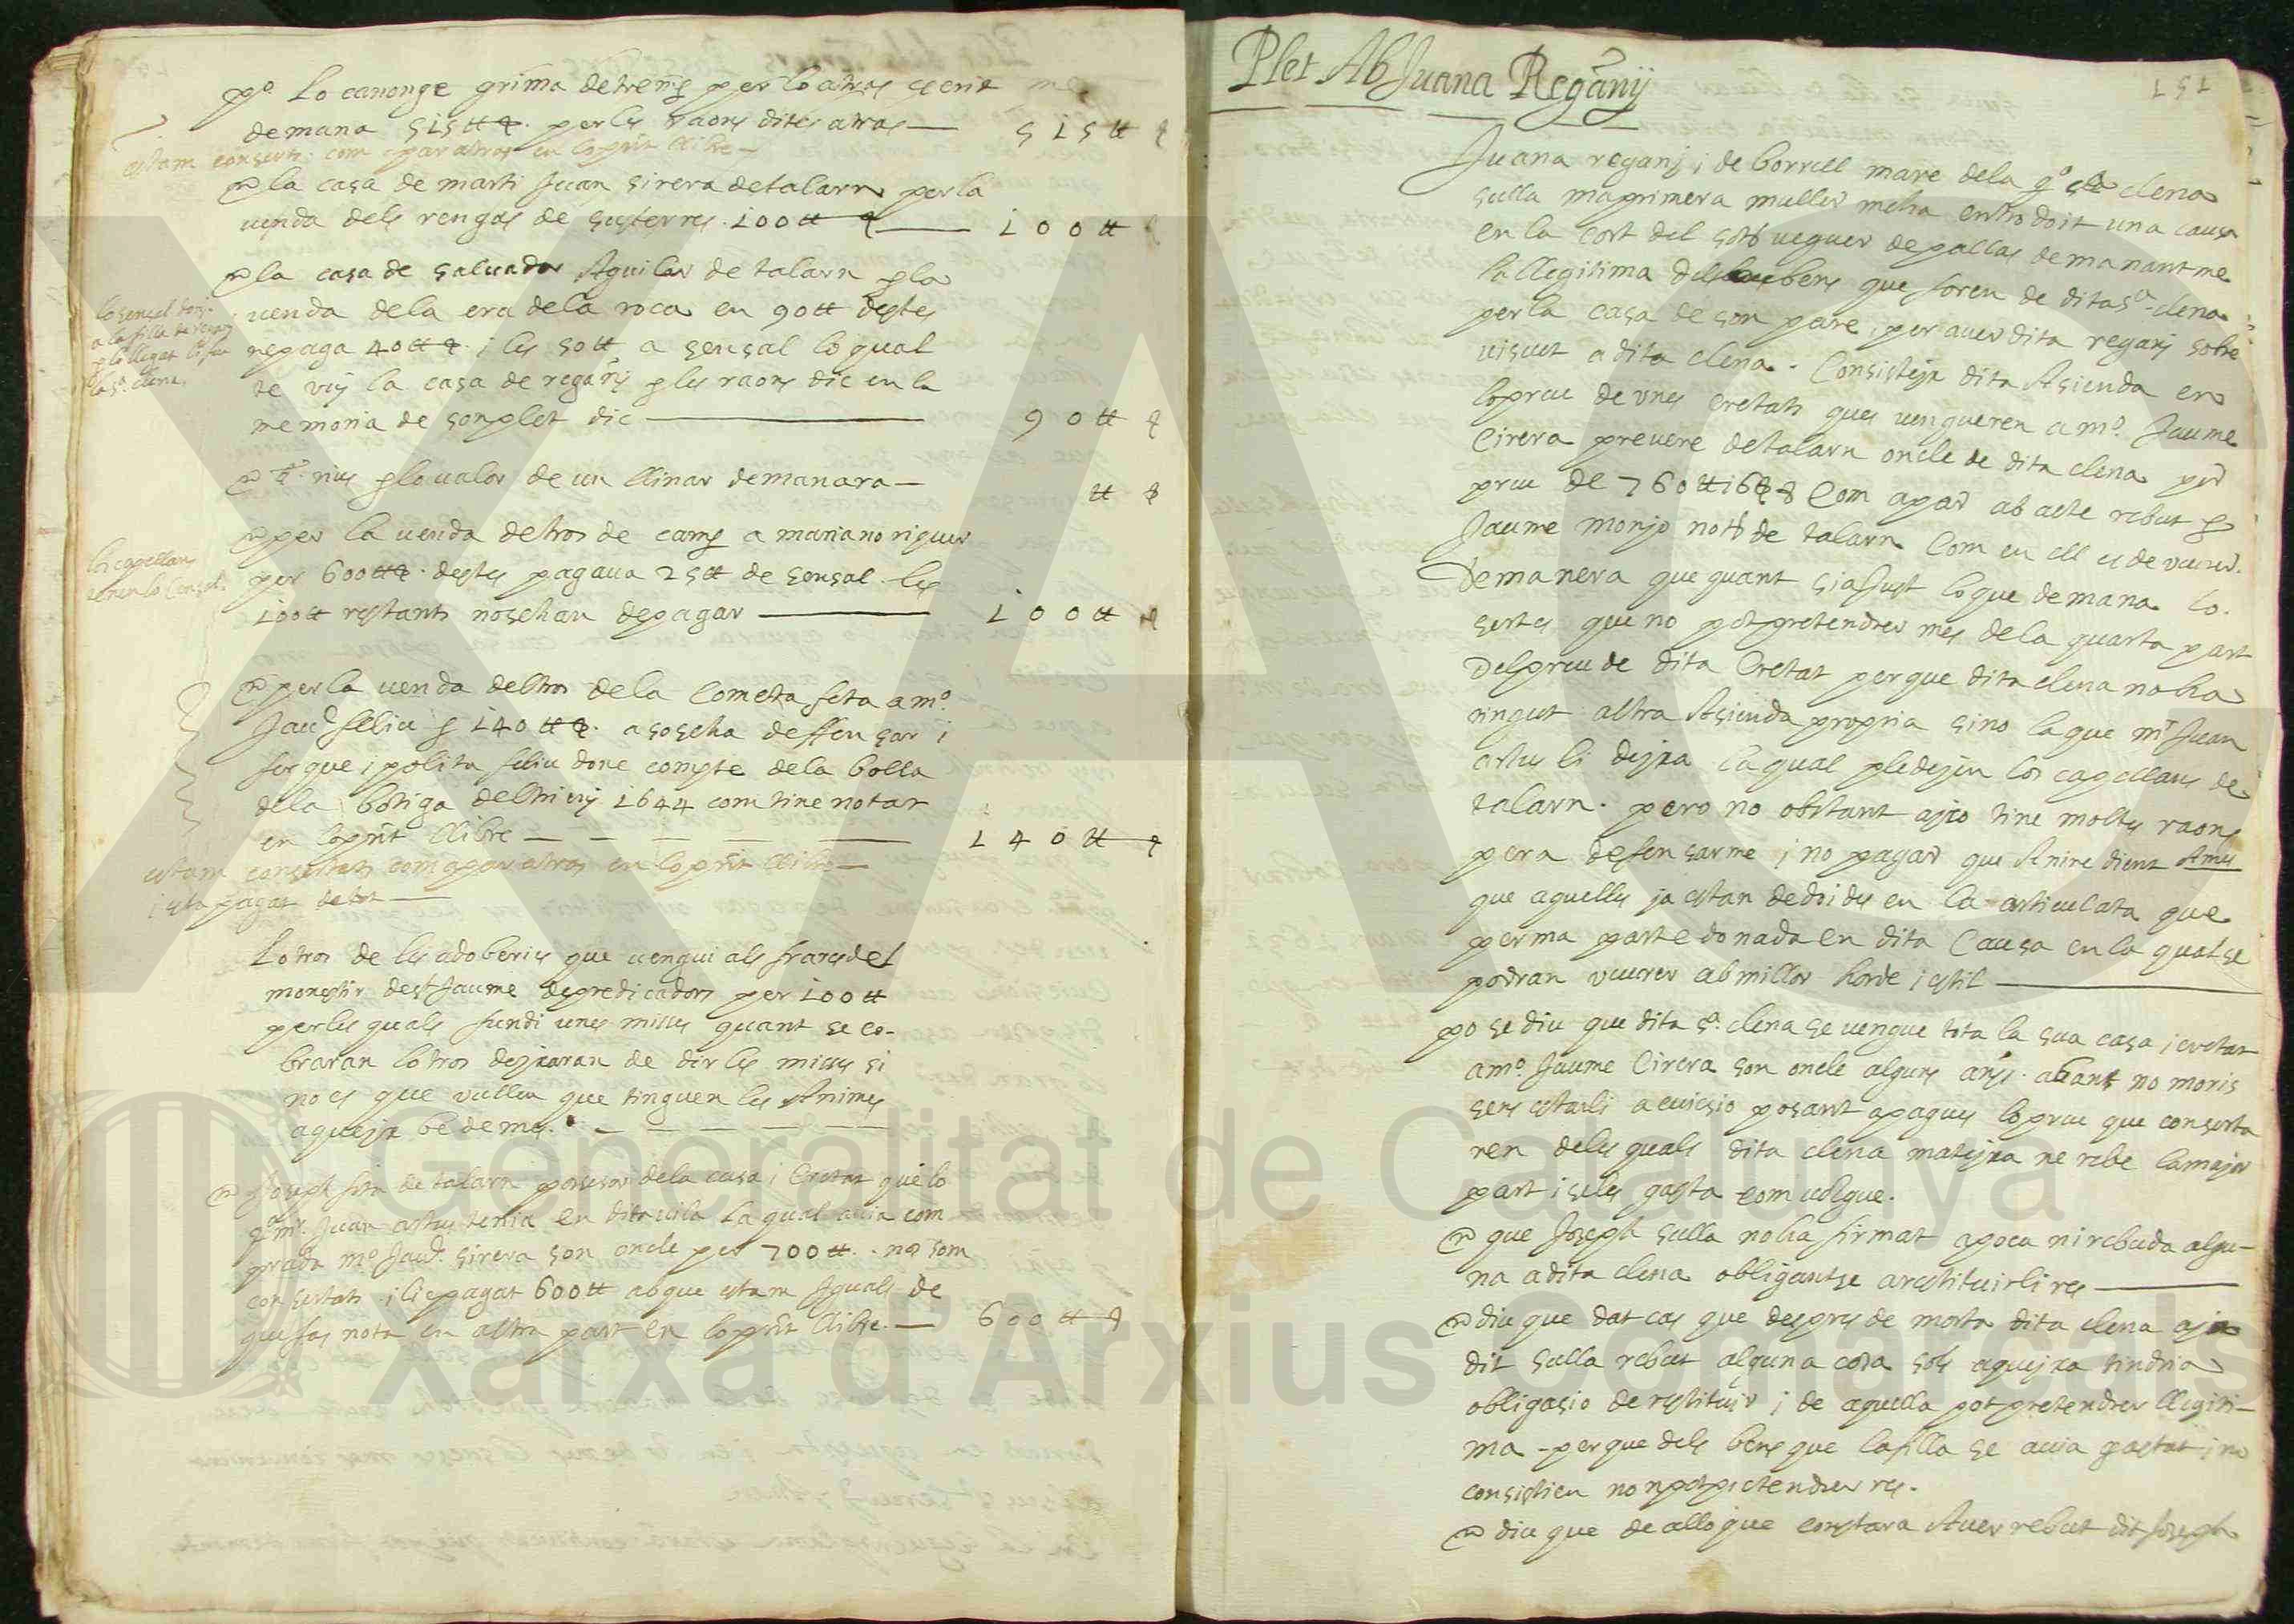 po. Lo canonge grima de trems per lo atras escrit
demana 515 ₶ per les raons dites atras — 515 ₶
estam consertats com apar atras en lo pnt llibre —
la casa de marti Juan sirera de talarn per la
venda dels rengas de susterres 100 ₶ — 100 ₶
la casa de saluador Aguilar de talarn p la
venda de la era de la roca en 90 ₶ destes
ne paga 40 ₶ i les 50 ₶ a sensal lo qual
te vuy la casa de regany p les raons dic en la
memoria de son plet dic — 90 ₶
lo sensal
a la filla de regany
p lo llegat li feu
la sa. elena
nus p lo valor de un llinar demanara —
₶
per la venda del tros de camp a mariano riguer
per 600 ₶ destes pagaua 25 ₶ de sensal les
100 ₶ restants no se han de pagar — 100 ₶
los capellans
tenen lo Censal
per la venda del tros de la Cometa feta a mo.
Jaume feliu p 140 ₶ aso se ha deffensar i
fer que ipolita feliu done compte de la bolla
de la botiga del trieny 1644 com tinc notat
en lo pnt llibre — 140 ₶
estam consertats com apar atras en lo pnt llibre —
i esta pagat de tot —
Lo tros de les adoberies que vengui als frares del
monestir de st Jaume de predicadors per 100 ₶
per les quals fundi unes misses quant se co-
braran lo tros dexaran de dir les misses si
no es que vullen que tinguen les Animes
aqueix be de mes.
Joseph fita de talarn posesor de la casa i Eretat que lo
qo. mr. Juan astus tenia en dita vila La qual auia com
prada mo Jaume sirera son oncle per 700 ₶ nos som
consertats i li e pagat 600 ₶ ab que estam Iguals de
que fas nota en altra part en lo pnt llibre. — 600 ₶
Plet Ab Juana Regany
151
Juana regany i de borrell mare de la qo. sa elena
sulla ma primera muller me ha entrodoit una causa
en la cort del sots veguer de pallas demanantme
la llegitima dels bens que foren de dita sa. elena
per la casa de son pare, per auer dita regany sobre
uiscut a dita elena. Consisteix dita Asienda en
lo preu de unes eretats ques vengueren a mo. Jaume
Cirera preuere de talarn oncle de dita elena per
preu de 760 ₶ 16 Com apar ab acte rebut p
Jaume monjo nott de talarn Com en ell es de veurer.
De manera que quant sia Just lo que demana lo
sert es que no pot pretendrer mes de la quarta part
Del preu de dita Eretat per que dita elena no ha
tingut altra Asienda propria sino la que mr Juan
astus li dexa la qual pledejen los capellans de
talarn. pero no obstant axo tinc moltes raons
pera defensarme i no pagar que Anire dient Ames
que aquelles ja estan dedoides en la articulata que
per ma part e donada en dita Causa en la qual se
podran veurer ab millor horde i estil —
po se diu que dita sa. elena se vengue tota la sua casa i eretat
a mo. Jaume Cirera son oncle alguns anys abans no moris
sens estarli a euicsio posant a pagues lo preu que conserta
ren dels quals dita elena mateixa ne rebe la major
part i sels gasta com volgue.
que Joseph sulla no ha firmat apoca ni rebuda algu-
na a dita elena obligantse a restituirli res —
diu que dat cas que despres de morta dita elena aja
dit sulla rebut alguna cosa sols aqueixa tindria
obligasio de restituir i de aquella pot pretendrer llegiti-
ma - per que dels bens que la filla se auia gastat i no
consistien no npot pretendrer res.
diu que de allo que constara Auer rebut dit Joseph
Generalitat de Catalunya
Xarxa d'Arxius Comarcals
XAC